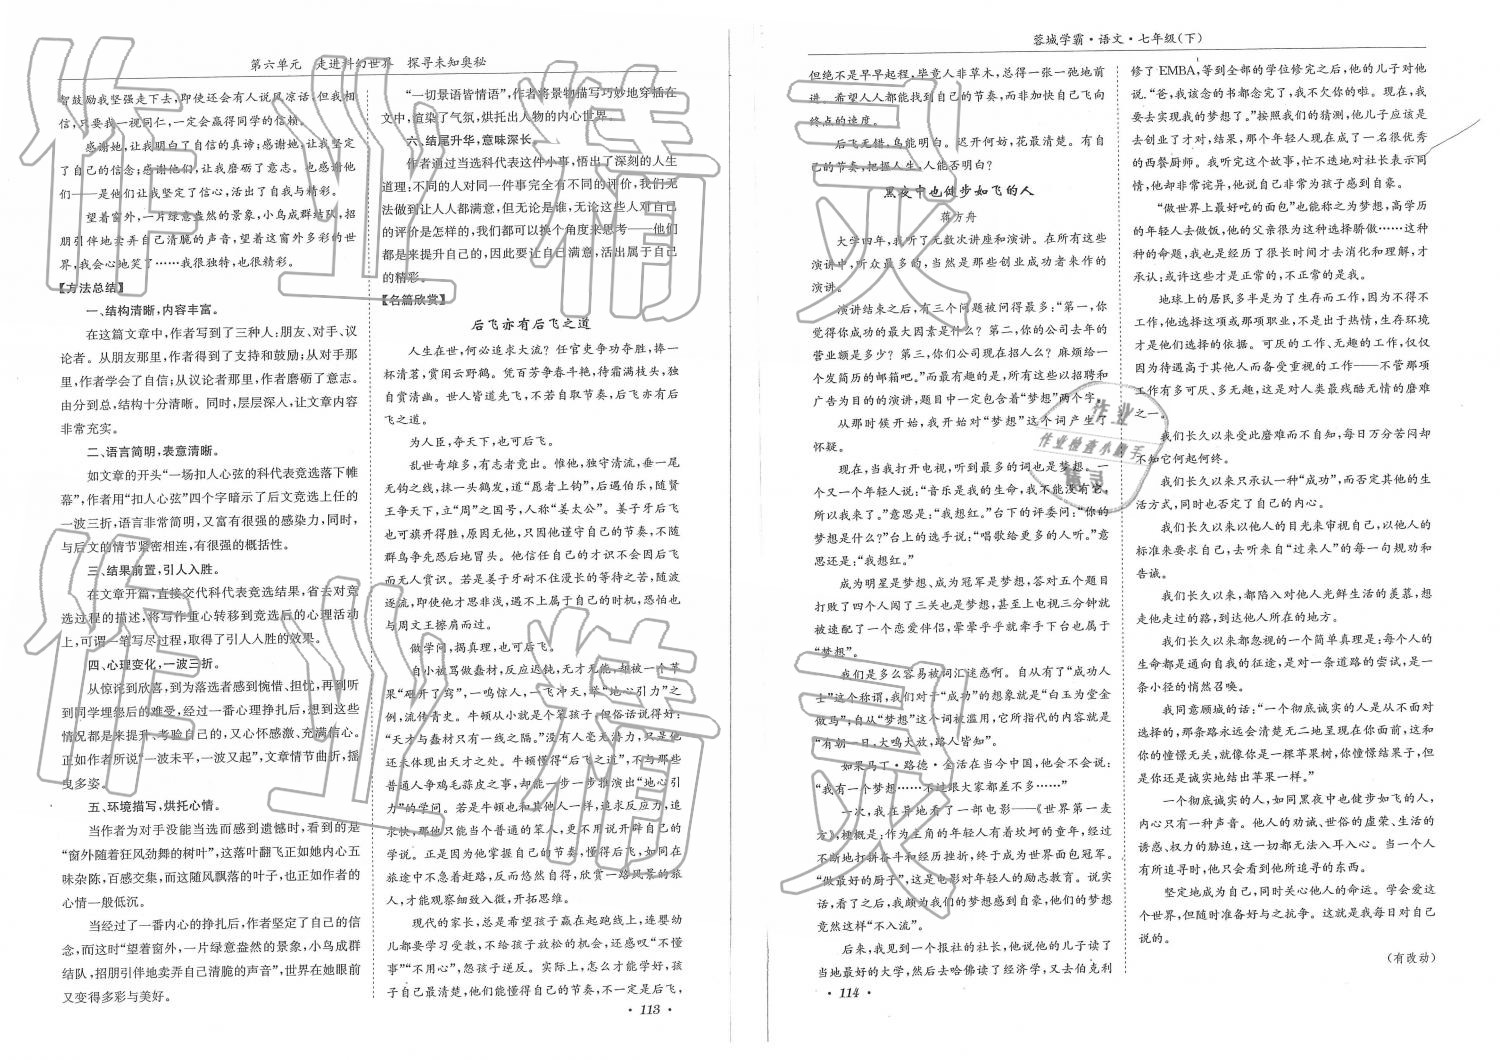 第六单元　走进科幻世界　探寻未知奥秘
智鼓励我坚强走下去,即使还会有人说风凉话,但我相
信,只要我一视同仁,一定会赢得同学的信赖。
感谢她,让我明白了自信的真谛;感谢她,让我坚定
了自己的信念;感谢他们,让我磨砺了意志。也感谢他
们——是他们让我坚定了信心,活出了自我与精彩。
望着窗外,一片绿意盎然的景象,小鸟成群结队,招
朋引伴地卖弄自己清脆的声音,望着这窗外多彩的世
界,我会心地笑了……我很独特,也很精彩。
【方法总结】
一、结构清晰,内容丰富。
在这篇文章中,作者写到了三种人:朋友、对手、议
论者。从朋友那里,作者得到了支持和鼓励;从对手那
里,作者学会了自信;从议论者那里,作者磨砺了意志。
由分到总,结构十分清晰。同时,层层深入,让文章内容
非常充实。
二、语言简明,表意清晰。
如文章的开头“一场扣人心弦的科代表竞选落下帷
幕”,作者用“扣人心弦”四个字暗示了后文竞选上任的
一波三折,语言非常简明,又富有很强的感染力,同时,
与后文的情节紧密相连,有很强的概括性。
三、结果前置,引人入胜。
在文章开篇,直接交代科代表竞选结果,省去对竞
选过程的描述,将写作重心转移到竞选后的心理活动
上,可谓一笔写尽过程,取得了引人入胜的效果。
四、心理变化,一波三折。
从惊诧到欣喜,到为落选者感到惋惜、担忧,再到听
到同学埋怨后的难受,经过一番心理挣扎后,想到这些
情况都是来提升、考验自己的,又心怀感激、充满信心。
正如作者所说“一波未平,一波又起”,文章情节曲折,摇
曳多姿。
五、环境描写,烘托心情。
当作者为对手没能当选而感到遗憾时,看到的是
“窗外随着狂风劲舞的树叶”,这落叶翻飞正如她内心五
味杂陈,百感交集,而这随风飘落的叶子,也正如作者的
心情一般低沉。
当经过了一番内心的挣扎后,作者坚定了自己的信
念,而这时“望着窗外,一片绿意盎然的景象,小鸟成群
结队,招朋引伴地卖弄自己清脆的声音”,世界在她眼前
又变得多彩与美好。
“一切景语皆情语”,作者将景物描写巧妙地穿插在
文中,渲染了气氛,烘托出人物的内心世界。
六、结尾升华,意味深长。
作者通过当选科代表这件小事,悟出了深刻的人生
道理;不同的人对同一件事完全有不同的评价,我们无
法做到让人人都满意,但无论是谁,无论这些人对自己
的评价是怎样的,我们都可以换个角度来思考——他们
都是来提升自己的,因此要让自己满意,活出属于自己
的精彩。
【名篇欣赏】
后飞亦有后飞之道
人生在世,何必追求大流?任官吏争功夺胜,捧一
杯清茗,赏闲云野鹤。凭百芳争春斗艳,待霜满枝头,独
自赏清幽。世人皆道先飞,不若自取节奏,后飞亦有后
飞之道。
为人臣,夺天下,也可后飞。
乱世奇雄多,有志者竞出。惟他,独守清流,垂一尾
无钩之线,抹一头鹤发,道“愿者上钩”,后遇伯乐,随贤
王争天下,立“周”之国号,人称“姜太公”。姜子牙后飞
也可旗开得胜,原因无他,只因他谨守自己的节奏,不随
群鸟争先恐后地冒头。他信任自己的才识不会因后飞
而无人赏识。若是姜子牙耐不住漫长的等待之苦,随波
逐流,即使他才思非浅,遇不上属于自己的时机,恐怕也
与周文王擦肩而过。
做学问,揭真理,也可后飞。
自小被骂做蠢材,反应迟钝,无才无能,却被一个苹
果“砸开了窍”,一鸣惊人,一飞冲天,举“地心引力”之
例,流传青史。牛顿从小就是个笨孩子,但俗话说得好:
“天才与蠢材只有一线之隔。”没有人毫无潜力,只是他
还未体现出天才之处。牛顿懂得“后飞之道”,不与那些
普通人争鸡毛蒜皮之事,却能一步一步推演出“地心引
力”的学问。若是牛顿也和其他人一样,追求反应力,追
求快,那他只能当个普通的笨人,更不用说开辟自己的
学说。正是因为他掌握自己的节奏,懂得后飞,如同在
旅途中不急着赶路,反而悠然自得,欣赏一路风景的旅
人,才能观察细致入微,开拓思维。
现代的家长,总是希望孩子赢在起跑线上,连婴幼
儿都要学习受教,不给孩子放松的机会,还感叹“不懂
事”“不用心”,怨孩子逆反。实际上,怎么才能学好,孩
子自己最清楚,他们能懂得自己的节奏,不一定是后飞,
· 113 ·
蓉城学霸·语文·七年级(下)
但绝不是早早起程,毕竟人非草木,总得一张一弛地前
进。希望人人都能找到自己的节奏,而非加快自己飞向
终点的速度。
后飞无错,鸟能明白。迟开何妨,花最清楚。有自
己的节奏,把握人生,人能否明白?
黑夜中也健步如飞的人
蒋方舟
大学四年,我听了无数次讲座和演讲。在所有这些
演讲中,听众最多的,当然是那些创业成功者来作的
演讲。
演讲结束之后,有三个问题被问得最多:“第一,你
觉得你成功的最大因素是什么?第二,你的公司去年的
营业额是多少?第三,你们公司现在招人么?麻烦给一
个发简历的邮箱吧。”而最有趣的是,所有这些以招聘和
广告为目的的演讲,题目中一定包含着“梦想”两个字。
从那时候开始,我开始对“梦想”这个词产生了
怀疑。
现在,当我打开电视,听到最多的词也是梦想。一
个又一个年轻人说:“音乐是我的生命,我不能没有它,
所以我来了。”意思是:“我想红。”台下的评委问:“你的
梦想是什么?”台上的选手说:“唱歌给更多的人听。”意
思还是:“我想红。”
成为明星是梦想、成为冠军是梦想,答对五个题目
打败了四个人闯了三关也是梦想,甚至上电视三分钟就
被速配了一个恋爱伴侣,晕晕乎乎就牵手下台也属于
“梦想”。
我们是多么容易被词汇迷惑啊。自从有了“成功人
士”这个称谓,我们对于“成功”的想象就是“白玉为堂金
做马”,自从“梦想”这个词被滥用,它所指代的内容就是
“有朝一日,大鸣大放,路人皆知”。
如果马丁·路德·金活在当今中国,他会不会说:
“我有一个梦想……不过跟大家都差不多……”
一次,我在异地看了一部电影——《世界第一麦
方》,梗概是:作为主角的年轻人有着坎坷的童年,经过
不断地打拼奋斗和经历挫折,终于成为世界面包冠军。
“做最好的厨子”,这是电影对年轻人的励志教育。说实
话,看了之后,我颇为我们的梦想感到自豪,他们的梦想
竟然这样“不入流”。
后来,我见到一个报社的社长,他说他的儿子读了
当地最好的大学,然后去哈佛读了经济学,又去伯克利
修了 EMBA,等到全部的学位修完之后,他的儿子对他
说:“爸,我该念的书都念完了,我不欠你的啦。现在,我
要去实现我的梦想了。”按照我们的猜测,他儿子应该是
去创业了才对,结果,那个年轻人现在成了一名很优秀
的西餐厨师。我听完这个故事,忙不迭地对社长表示同
情,他却非常诧异,他说自己非常为孩子感到自豪。
“做世界上最好吃的面包”也能称之为梦想,高学历
的年轻人去做饭,他的父亲很为这种选择骄傲……这种
种的命题,我也是经历了很长时间才去消化和理解,才
承认:或许这些才是正常的,不正常的是我。
地球上的居民多半是为了生存而工作,因为不得不
工作,他选择这项或那项职业,不是出于热情,生存环境
才是他们选择的依据。可厌的工作、无趣的工作,仅仅
因为待遇高于其他人而备受重视的工作——不管那项
工作有多可厌、多无趣,这是对人类最残酷无情的磨难
之一。
我们长久以来受此磨难而不自知,每日万分苦闷却
不知它何起何终。
我们长久以来只承认一种“成功”,而否定其他的生
活方式,同时也否定了自己的内心。
我们长久以来以他人的目光来审视自己,以他人的
标准来要求自己,去听来自“过来人”的每一句规劝和
告诫。
我们长久以来,都陷入对他人光鲜生活的羡慕,想
走他走过的路,到达他人所在的地方。
我们长久以来都忽视的一个简单真理是:每个人的
生命都是通向自我的征途,是对一条道路的尝试,是一
条小径的悄然召唤。
我同意顾城的话:“一个彻底诚实的人是从不面对
选择的,那条路永远会清楚无二地呈现在你面前,这和
你的憧憬无关,就像你是一棵苹果树,你憧憬结果子,但
是你还是诚实地结出苹果一样。”
一个彻底诚实的人,如同黑夜中也健步如飞的人,
内心只有一种声音。他人的劝诫、世俗的虚荣、生活的
诱惑、权力的胁迫,这一切都无法入耳入心。当一个人
有所追寻时,他只会看到他所追寻的东西。
坚定地成为自己,同时关心他人的命运。学会爱这
个世界,但随时准备好与之抗争。这就是我每日对自己
说的。
(有改动)
· 114 ·
作业精灵
作业精灵
作业
作业检查小助手
精灵